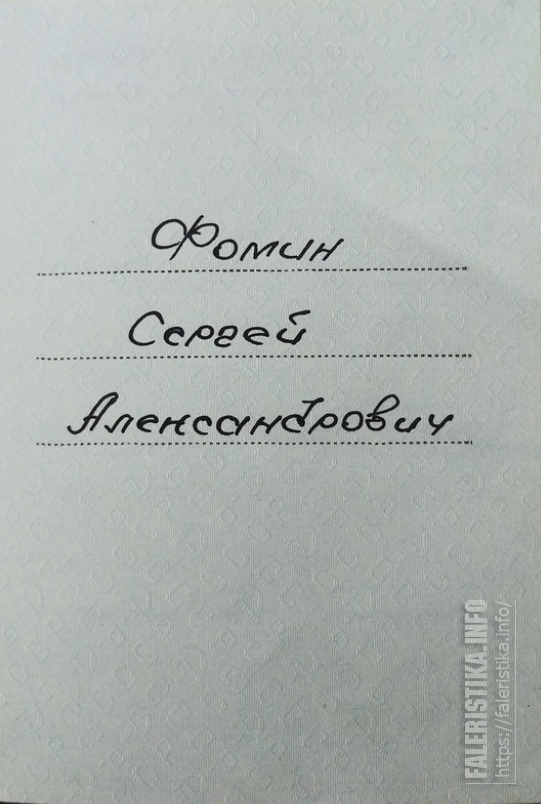 Фомин
Сергей
Александрович
FALERISTIKA.INFO
https://faleristika.info/